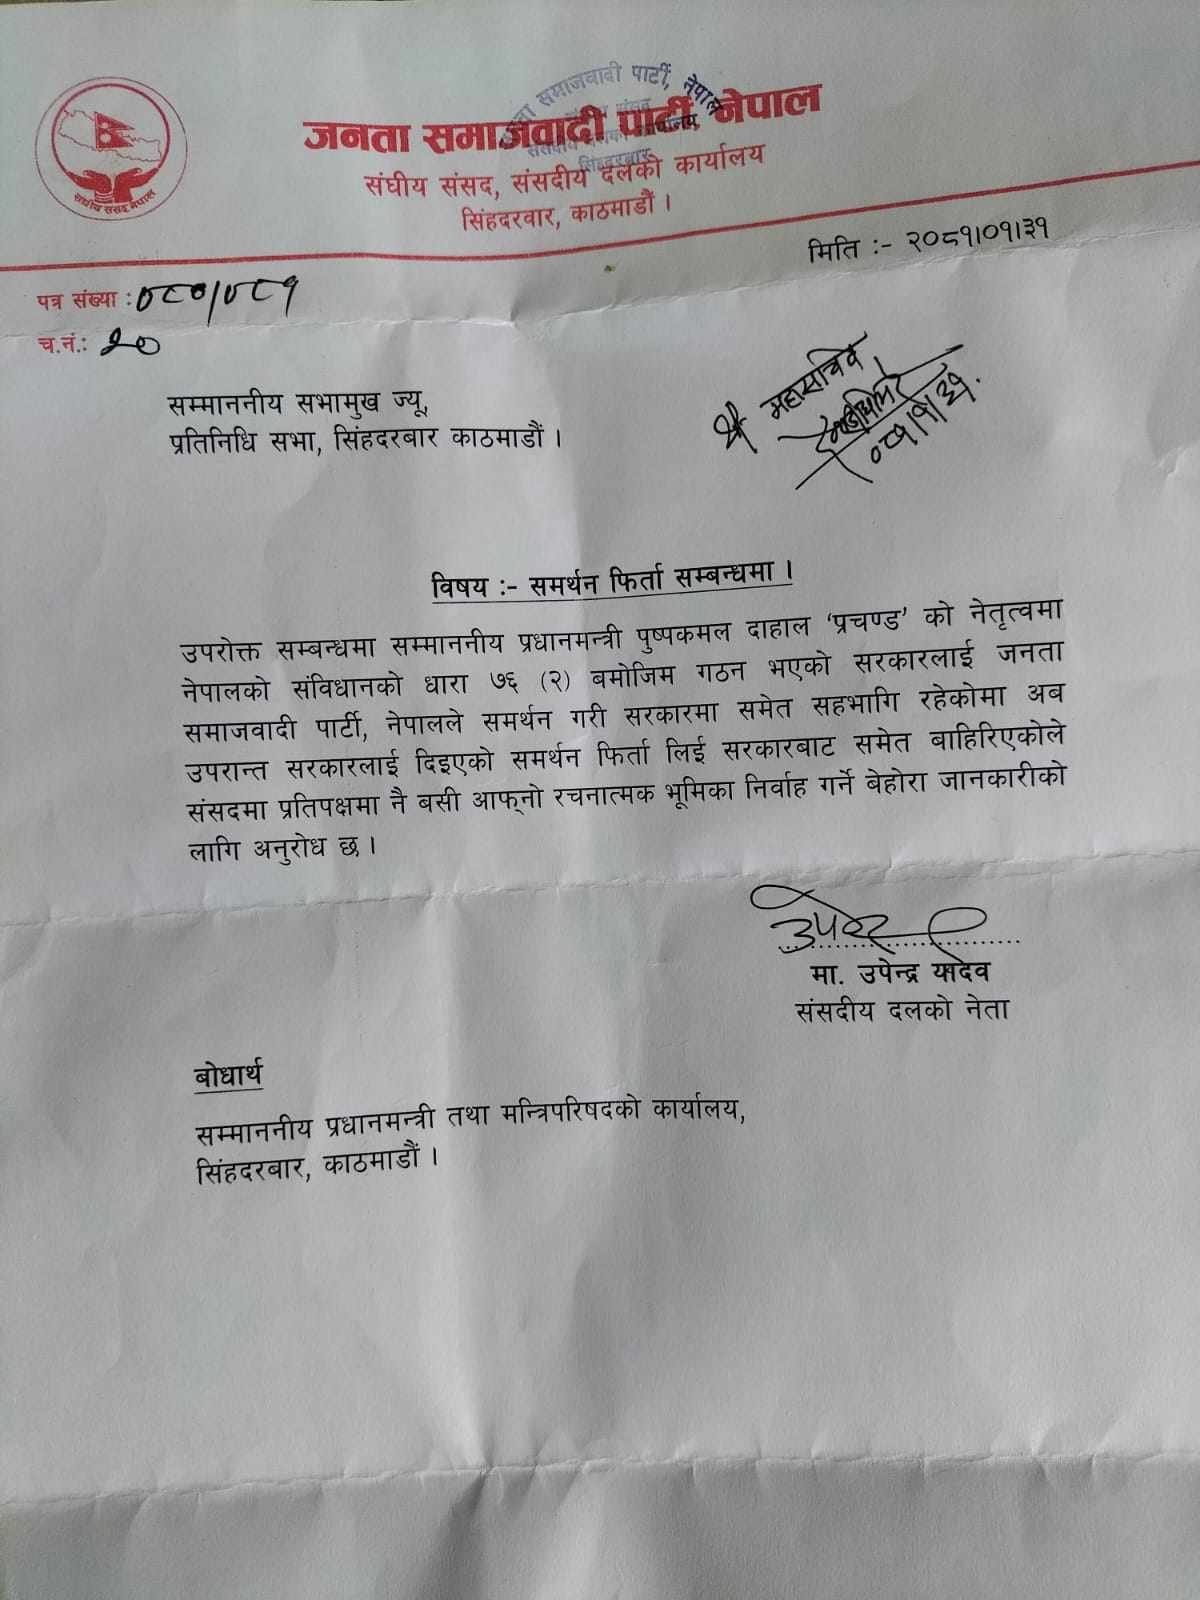 जनता समाजवादी पार्टी, नेपाल
समाजवादी पार्टी, नेपाल
सिंहदरबार
संघीय संसद, संसदीय दलको कार्यालय
सिंहदरवार, काठमाडौं ।
संघीय संसद नेपाल
मिति :- २०८१।०१।३१
पत्र संख्या : ०८०/०८१
च.नं.: २०
सम्माननीय सभामुख ज्यू,
प्रतिनिधि सभा, सिंहदरबार काठमाडौं ।
श्री महासचिव
०८१/१/३१.
विषय :- समर्थन फिर्ता सम्बन्धमा ।
उपरोक्त सम्बन्धमा सम्माननीय प्रधानमन्त्री पुष्पकमल दाहाल ‘प्रचण्ड’ को नेतृत्वमा
नेपालको संविधानको धारा ७६ (२) बमोजिम गठन भएको सरकारलाई जनता
समाजवादी पार्टी, नेपालले समर्थन गरी सरकारमा समेत सहभागि रहेकोमा अब
उपरान्त सरकारलाई दिइएको समर्थन फिर्ता लिई सरकारबाट समेत बाहिरिएकोले
संसदमा प्रतिपक्षमा नै बसी आफ्‌नो रचनात्मक भूमिका निर्वाह गर्ने बेहोरा जानकारीको
लागि अनुरोध छ ।
मा. उपेन्द्र यादव
संसदीय दलको नेता
बोधार्थ
सम्माननीय प्रधानमन्त्री तथा मन्त्रिपरिषदको कार्यालय,
सिंहदरबार, काठमाडौं ।